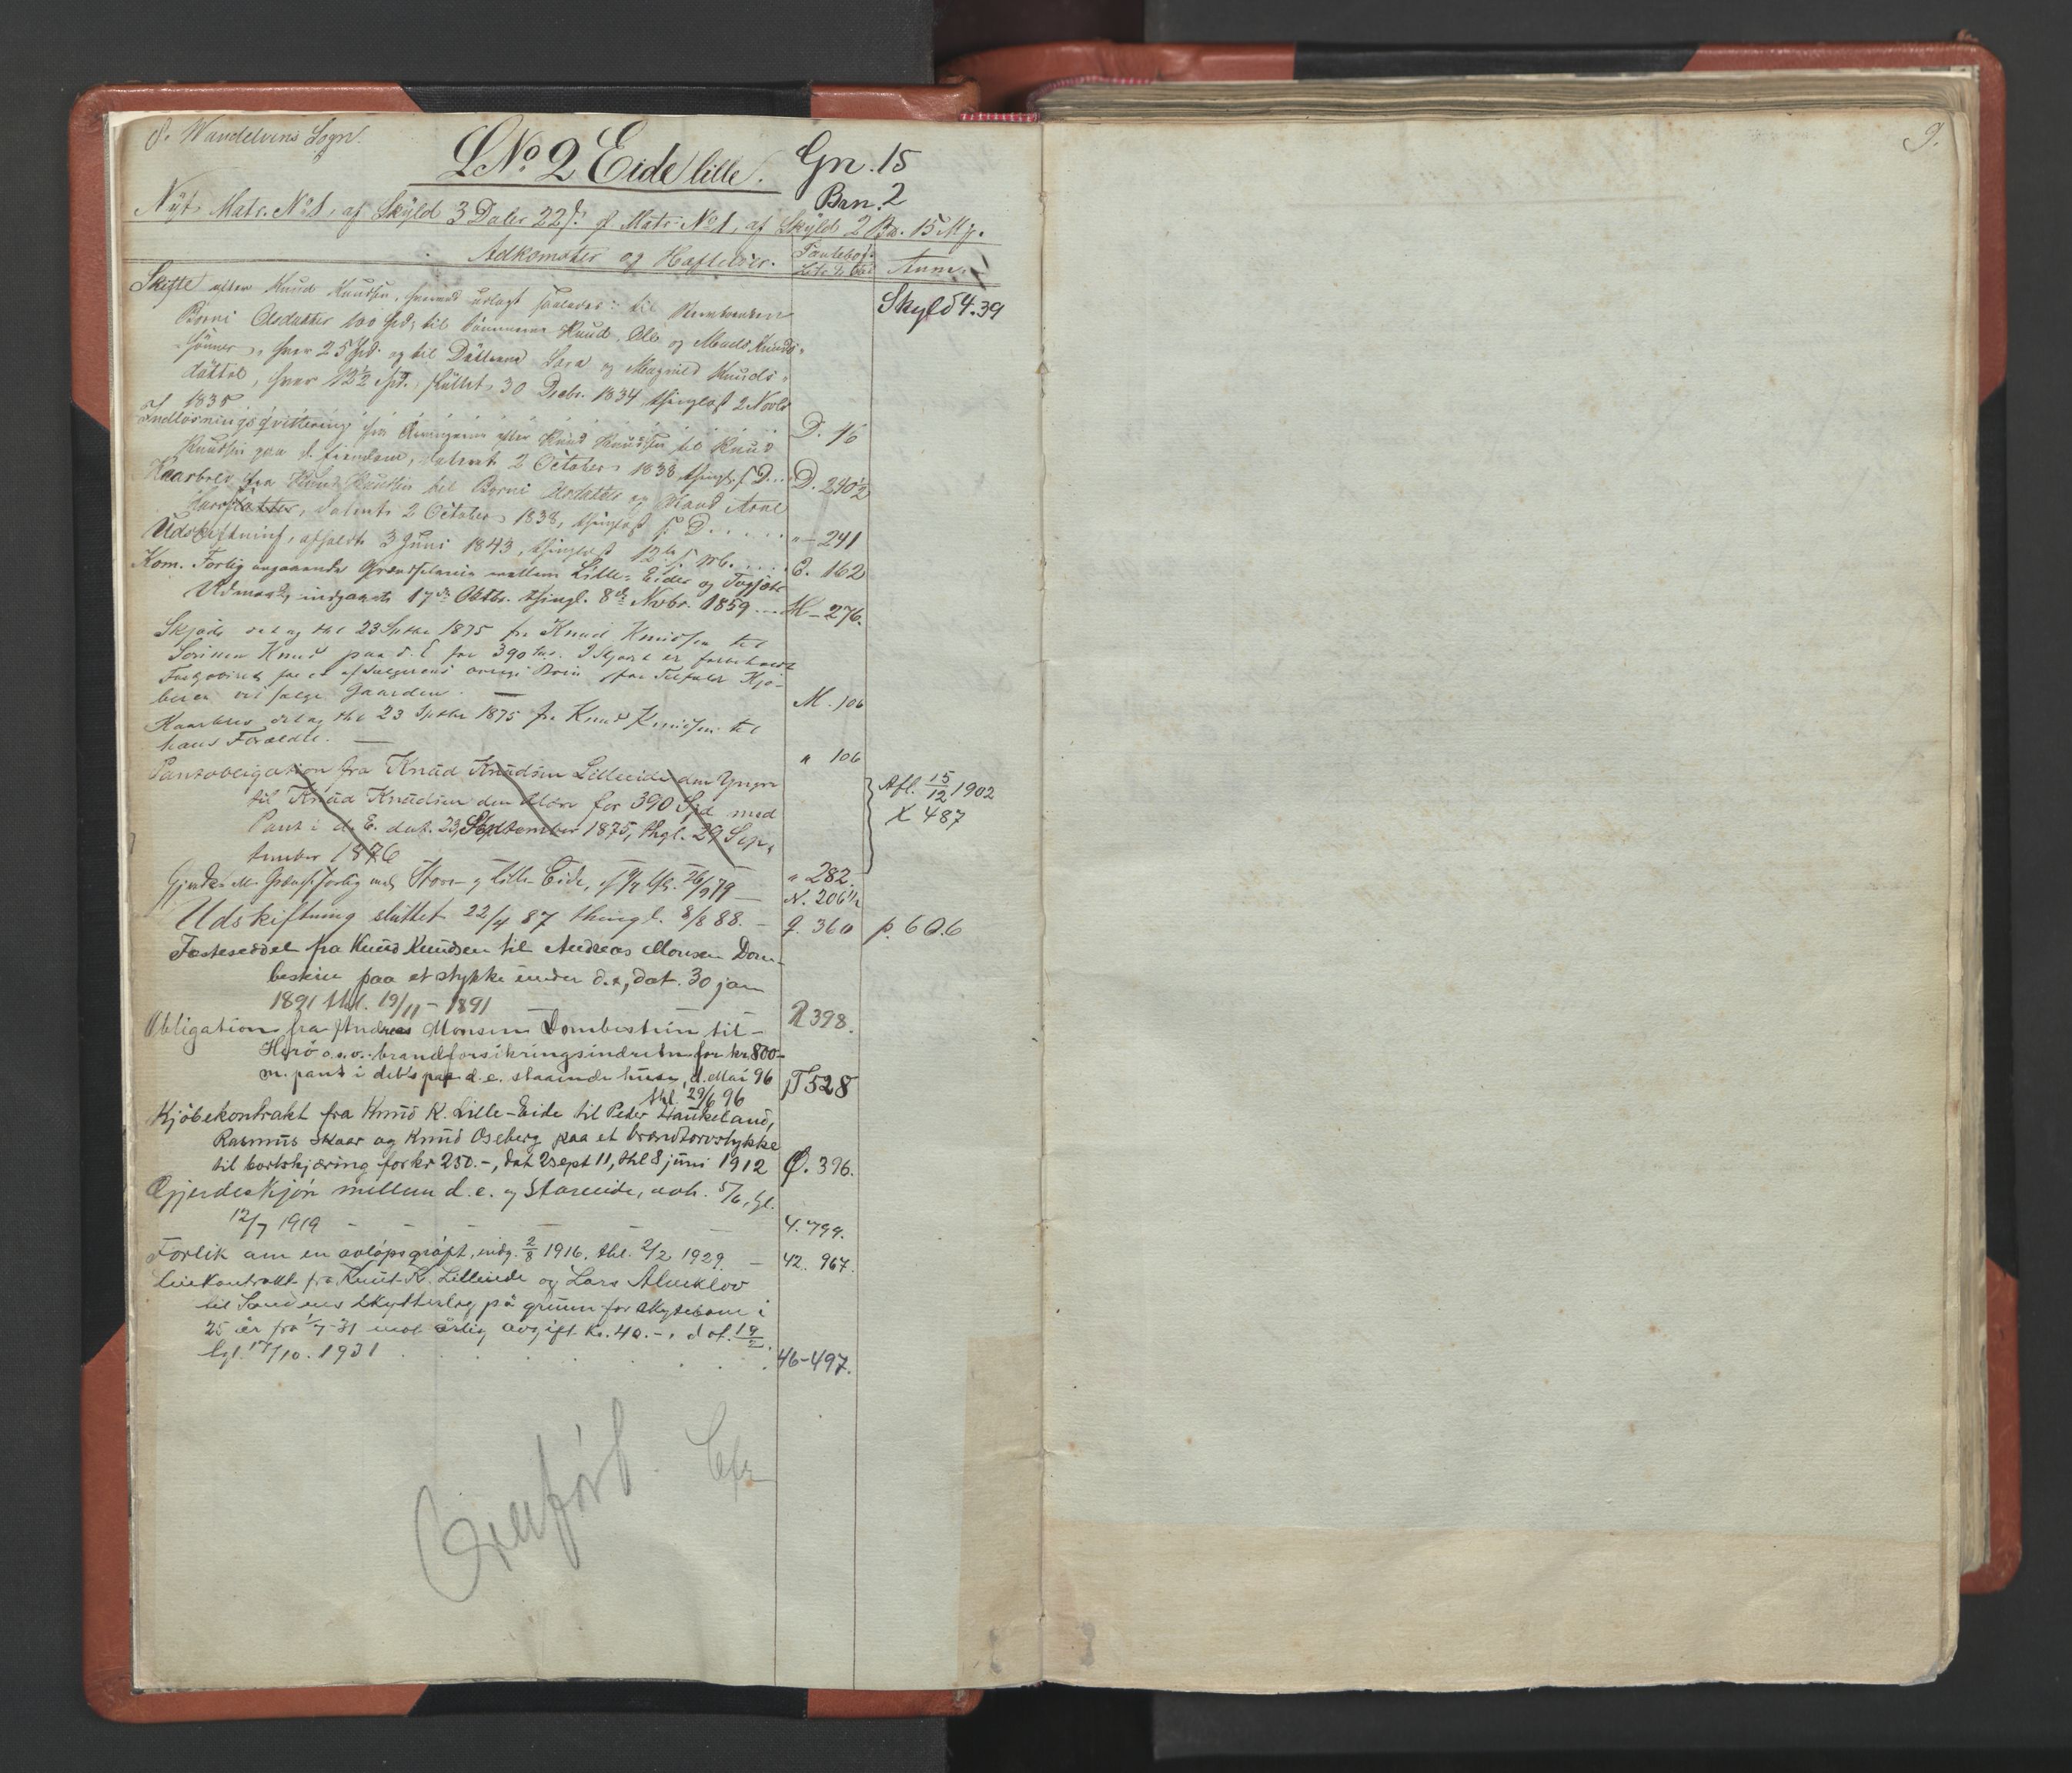 Wandelvens Sogn.
LNo. 2 Eide lille. Gn. 15
Brn. 2
Nÿt Matr. No 1, af Skÿld 3 Daler 22 Matr. No 1, af Skÿld 2 15
Adkomster og Hæftelser. Anm.
Skifte efter Knud Knudsen, udlagt saaledes: til Skyld 4.39
Børni Olsdatter 100 Spd, til Sønnerne Knud, Ole og Mads Knuds-
sønner, hver 25 Spd. og til Døttrene og Magnild Knuds-
døttre, hver 12½ Spd. sluttet 30 Decbr. 1834, thinglæst 2 Novbr
1835 D. 46
Indløsningsqvittering fra Arvingerne efter Knud Knudsen til Knud
Knudsen paa d. Eiendom, dateret 2 October 1838 thingl. s. D... D. 240½
Kaarbrev fra Knud Knudsen til Børni Olsdatter og Mand Arne
dateret 2 October 1838, thinglæst s. D. . . . . . "- 241
Udskiftning, afholdt 3 Juni 1843, thinglæst 12 . . . . 162
Kom. Forlig angaaende mellem Lille-Eides og
Udmark, indgaaet 17de Oktbr. thingl. 8de Novbr. 1859 - 276.
Skjøde dat og thl 23 Septbr 1875 fra Knud Knudsen til
Sønnen Knud paa d. E for 390 I Skjødet er forbeholdt
for en af Sælgerens øvrige Børn for Tilfælde Kjø-
beren vil sælge Gaarden. — M. 106
Kaarbrev dat og thl 23 Septbr 1875 fra Knud Knudsen til
hans Forældre. — " 106
Pantobligation fra Knud Knudsen Lilleeide den Yngre
til Knud Knudsen den ældre for 390 Spd med Afl. 15/12 1902
Pant i d. E. dat. 23 September 1875, thgl. 29 Sep- X 487
tember 1876 " 282.
Gjerdes og Grændseforlig mell. Store- og Lille Eide, 26/9 79 — N. 206½
Udskiftning sluttet 22/4 87 thingl. 8/8 88. - 360 p. 606
Fæsteseddel fra Knud Knudsen til Andreas Monsen Dom-
bestein paa et stykke under d. e, dat. 30 jan
1891 thl. 19/11 - 1891 R 398.
Obligation fra Andreas Monsen Dombestein til -
Herø o.s.v. brandforsikringsindretn for kr 800-
m. pant i deb's paa d. e. staaende huse, d. Mai 96
thl. 29/6 96 T 528
Kjøbekontrakt fra Knud K. Lille-Eide til Peder Haukeland,
Rasmus Skaar og Knud Oseberg paa et brændtorvstykke
til bortskjæring for kr 250.-, dat 2 sept 11, thl 8 juni 1912 Ø. 396.
Gjerdeskjøn mellem d. e. og Storeeide, avh. 5/6, tgl.
12/7 1919 - - - - - 4. 799.
Forlik om en avløpsgrøft, indg. 2/8 1916. thl. 2/2 1929. - 42. 967.
Leiekontrakt fra Knut K. Lilleeide og Lars Almeklov
til Sandsnes Skytterlag på grunn for skytebane i
25 år fra 1/7-31 mot årlig avgift kr. 40.-, dat. 19/2.
tgl. 17/10. 1931 . . . . . . 46-497.
Overført.
9.